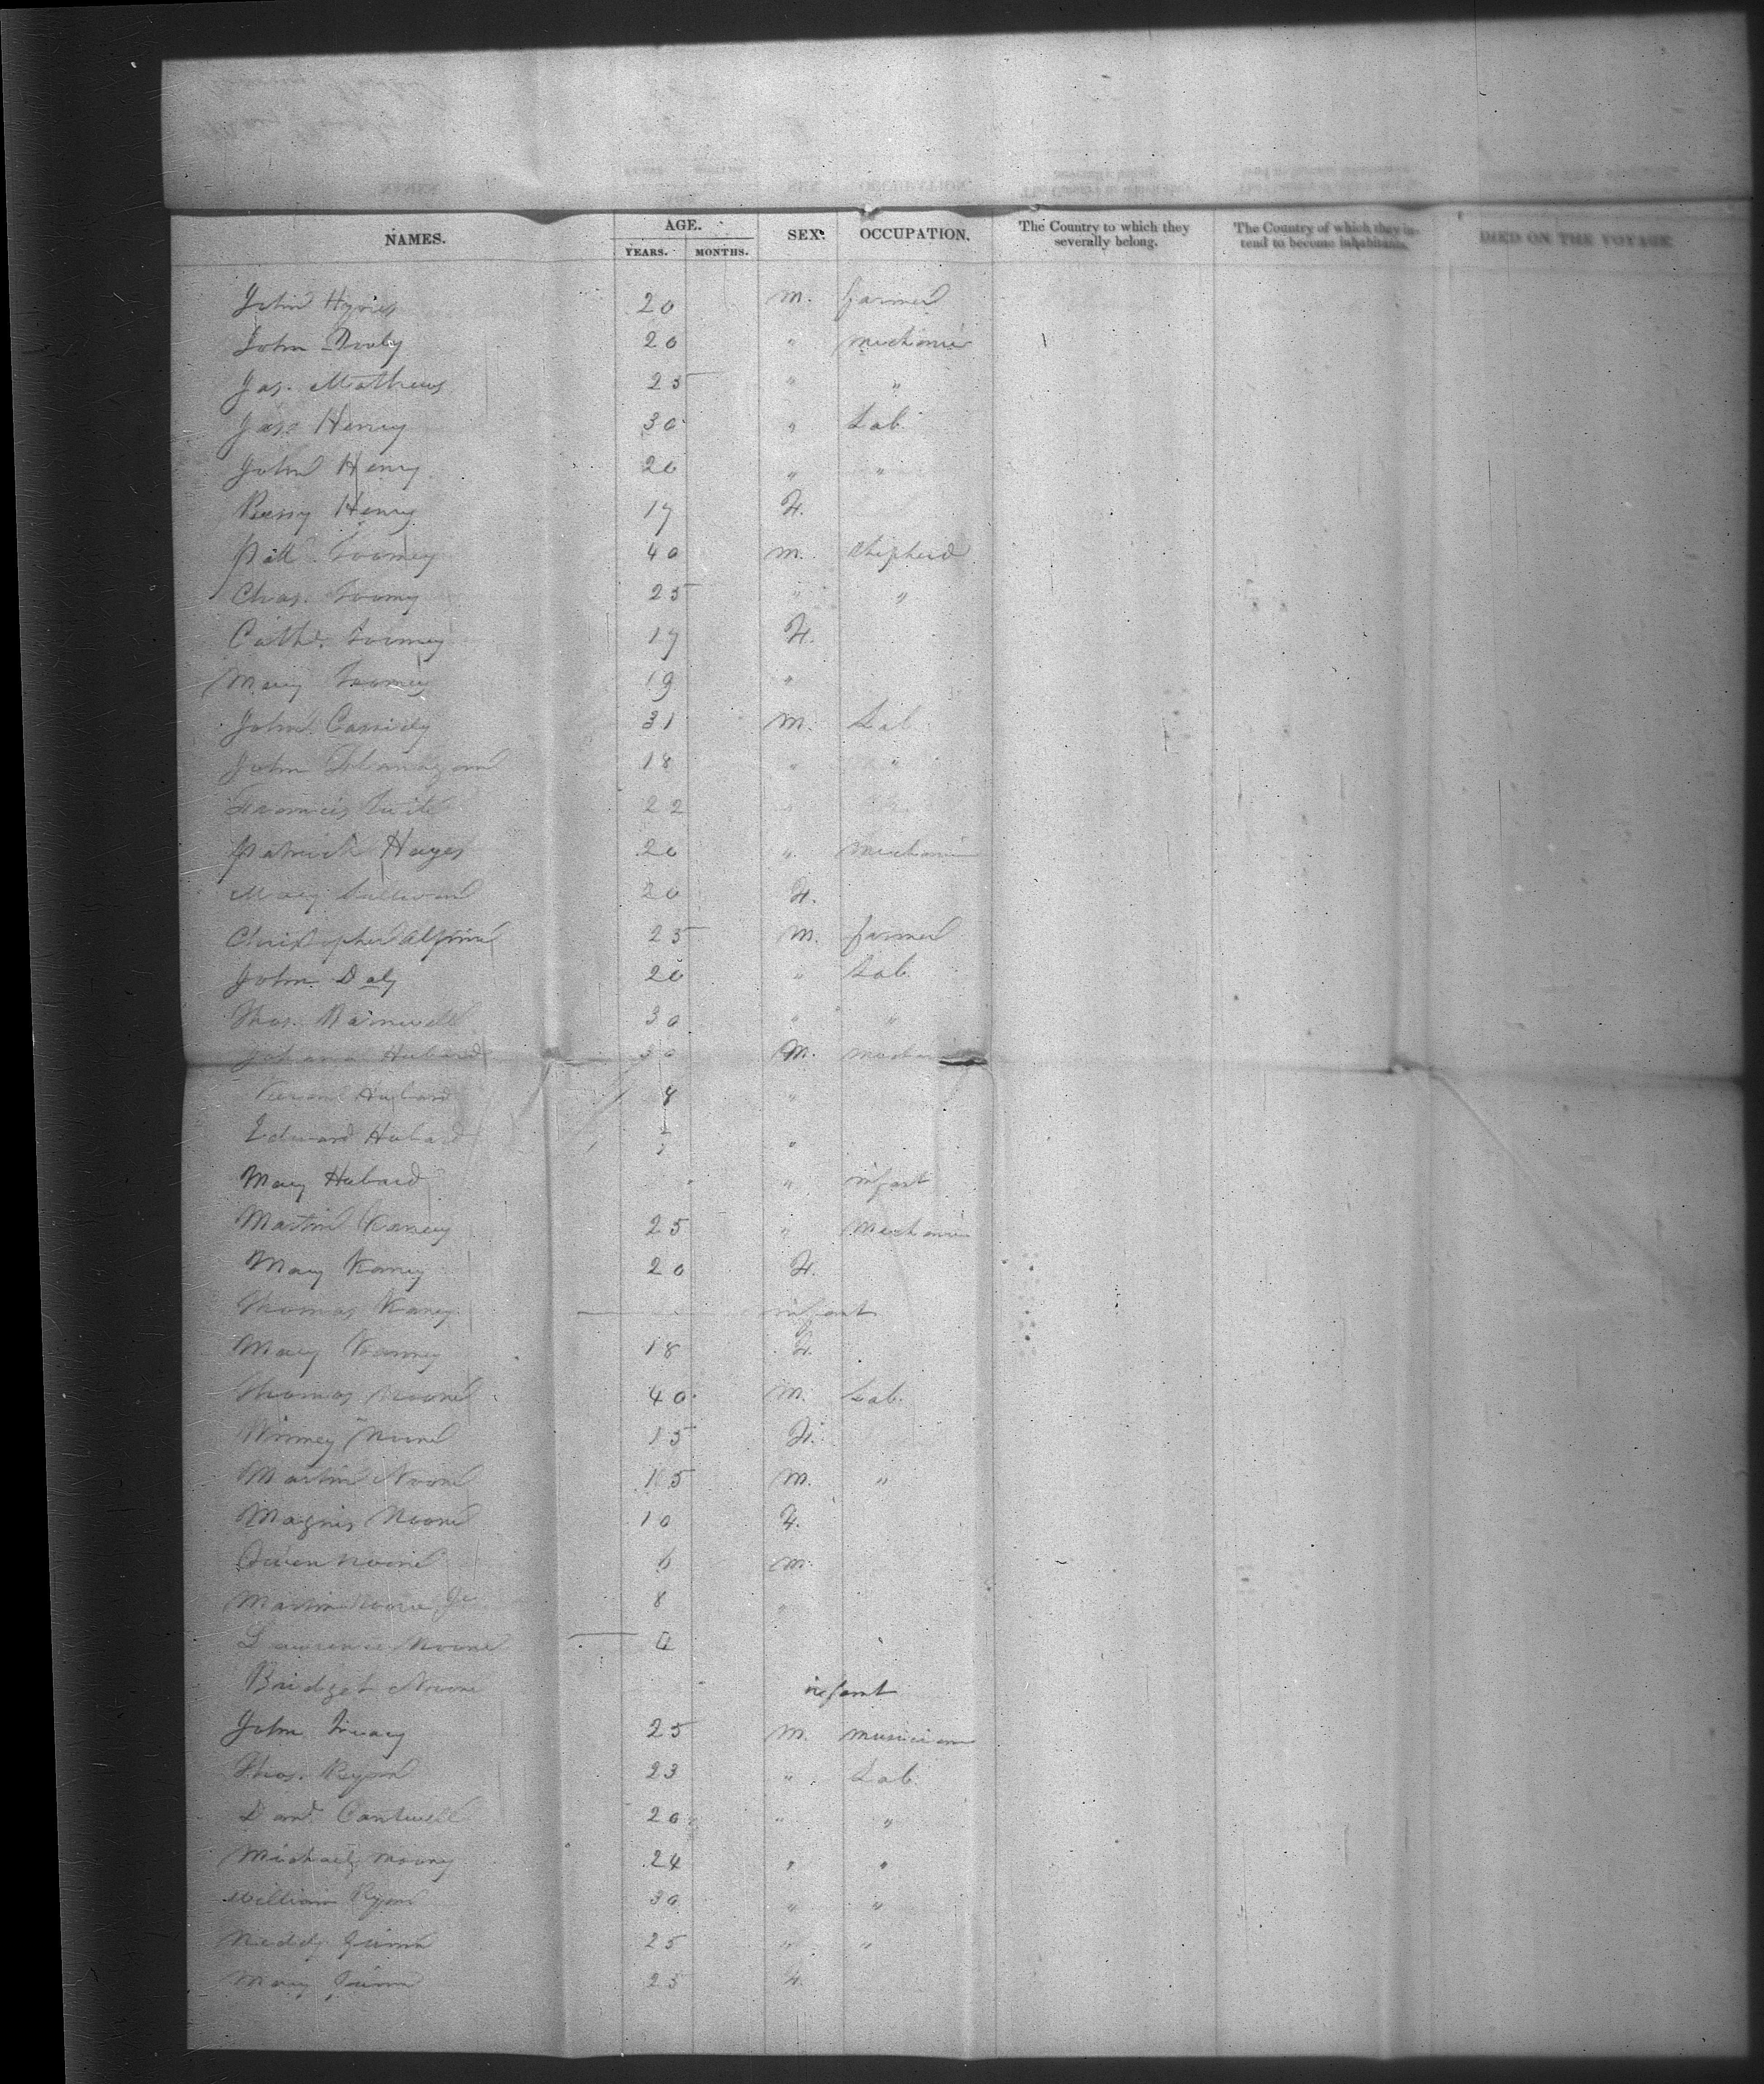 NAMES. AGE. SEX. OCCUPATION. The Country to which they severally belong. The Country of which they intend to become inhabitants. DIED ON THE VOYAGE
YEARS. MONTHS.
John Hynes 20 M. farmer
John 20 " mechanic
Jas. Mathews 25 " "
Jas. Henry 30 " Lab.
John Henry 20 " "
Bessy Henry 17 F.
Patk. Toomey 40 M. Shepherd
Chas. Toomy 25 " "
Cath. Toomey 17 F.
Mary Toomey 19 "
John Cassidy 31 M. Lab.
John Flanagan 18 " "
Francis 22 "
Patrick Hayes 20 " Mechanic
Mary Sullivan 20 F.
Christopher 25 M. farmer
John Daly 20 " Lab.
Thos. Barnwell 30 " "
Hubard 30 M.
Hubard 8 "
Edward Hubard "
Mary Hubard " infant
Martin 25 " Mechanic
Mary 20 F.
Thomas infant
Mary 18 F.
Thomas Noone 40 M. Lab.
Noone 15 F.
Martin Noone 15 M. "
Noone 10 F.
Owen Noone 6 M.
Martin Noone Jr 8 "
Lawrence Noone 4
Bridget Noone infant
John 25 M. musician
Thos. Ryan 23 " Lab.
Cantwell 20 " "
Michael 24 " "
William Ryan 30 " "
Neddy Quinn 25 " "
Mary Quinn 25 F.